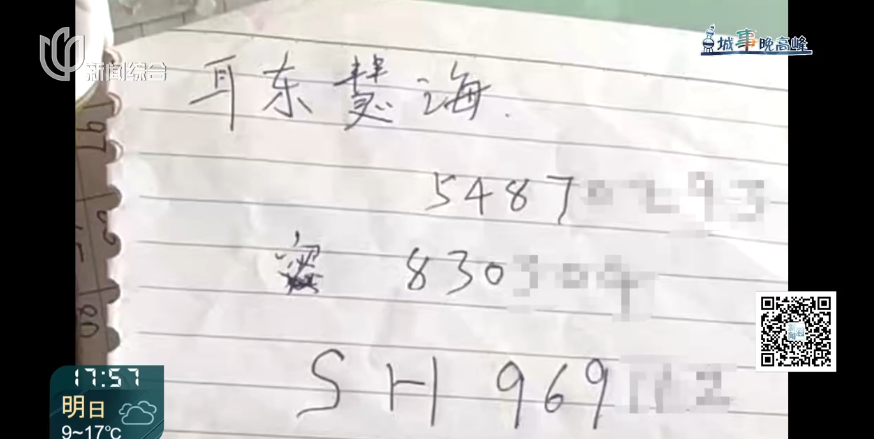 新闻综合
城事晚高峰
耳东慧海.
5487
密 830
SH 969
17:57
明日
9~17℃